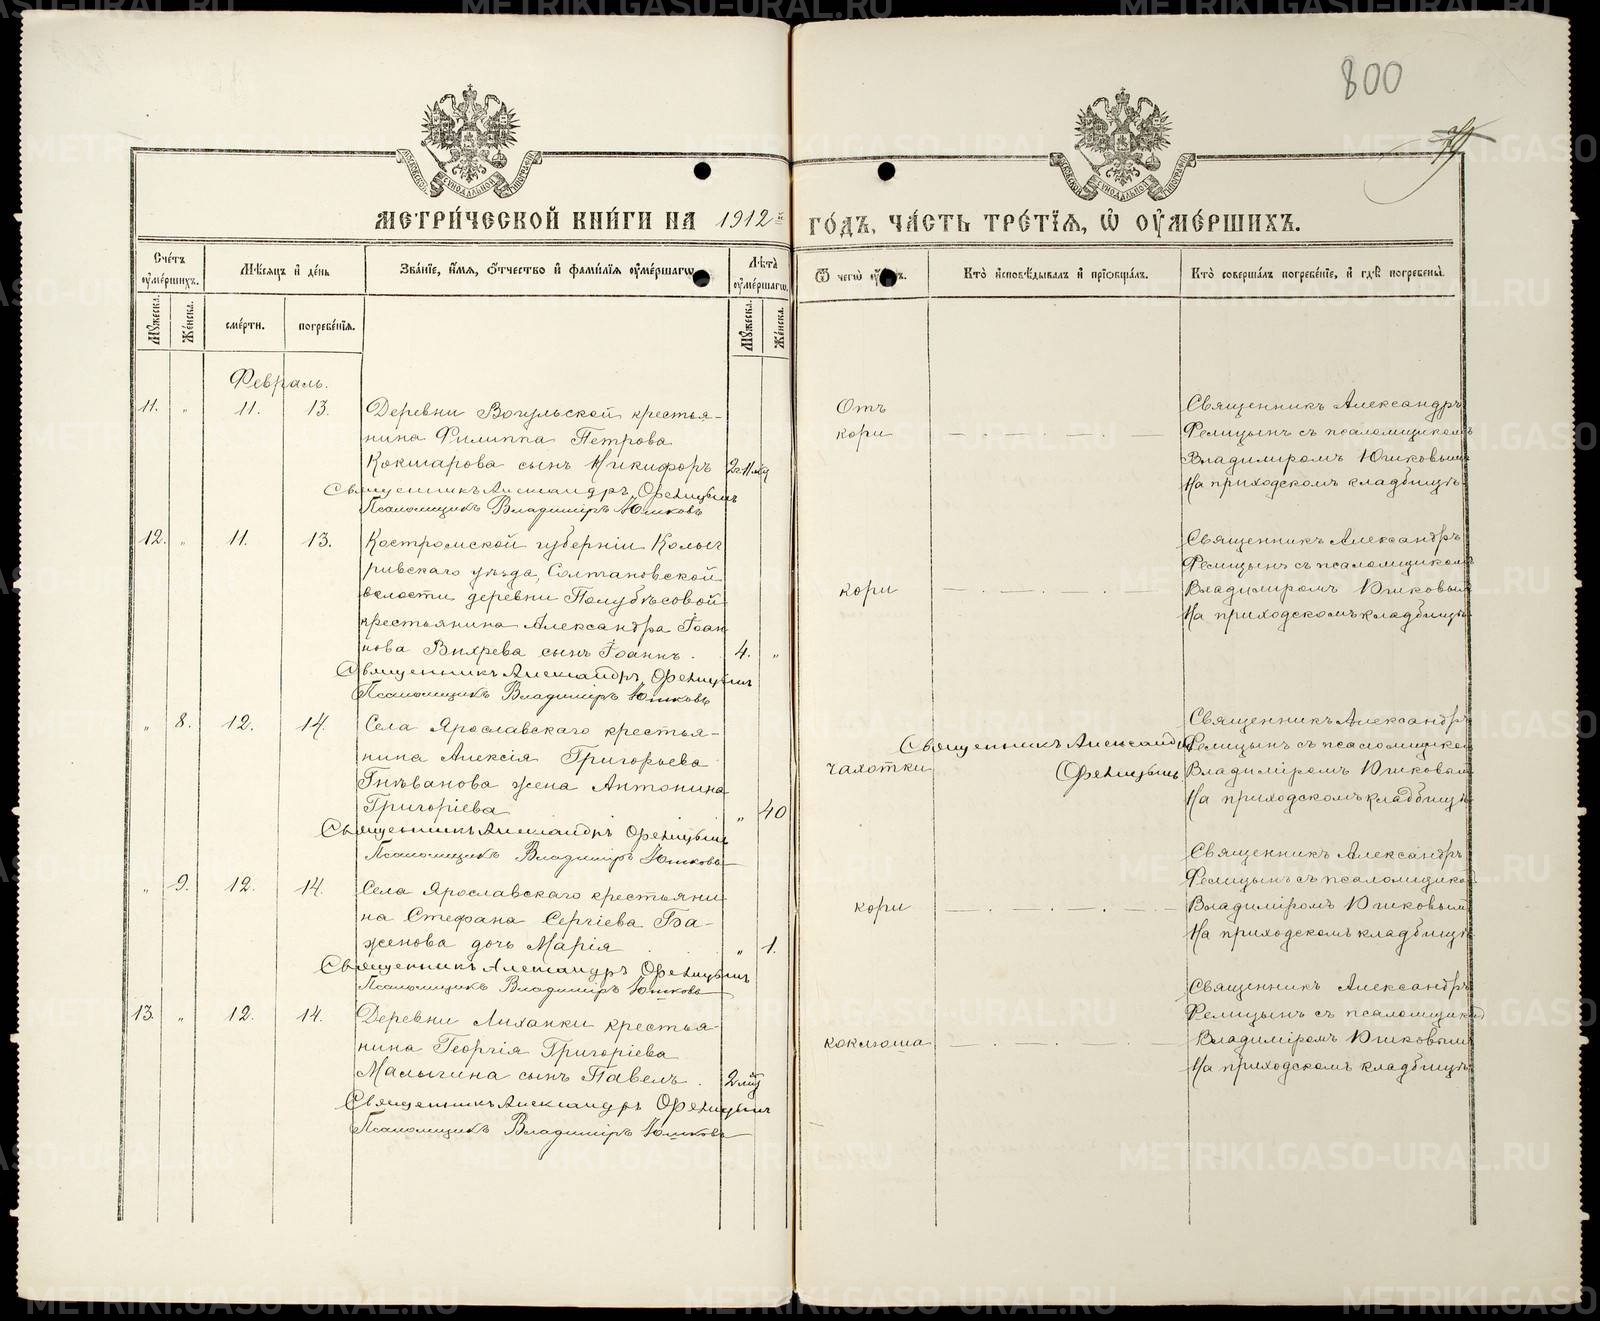 800
МЕТРИ́ЧЕСКОЙ КНИ́ГИ НА 1912й ГО́ДЪ, ЧА́СТЬ ТРЕ́ТЇЯ, Ѿ ОУ҆МЕ́РШИХЪ.
Сче́тъ оумершихъ.
Мѣ́сяцъ и де́нь
Зва́нїе, и́мя, о́тчество и фами́лїя оуме́ршагѡ
Лѣта̀ оуме́ршагѡ.
Ѿ чегѡ̀
Кто̀ исповѣ́дывалъ и прїѡбща́лъ.
Кто̀ соверша́лъ погребе́нїе, и гдѣ̀ погребены̀.
Мꙋжеска.
Же́нска.
сме́рти.
погребе́нїя.
Мꙋжеска.
Же́нска.
Февраль.
11. " 11. 13. Деревни Вогульской крестья-
нина Филиппа Петрова
Кокшарова сынъ Никифоръ
Священникъ Александръ Фелицынъ
Псаломщикъ Владиміръ Юшковъ
Отъ
кори
Священникъ Александръ
Фелицынъ съ псаломщикомъ
Владиміромъ Юшковымъ
На приходскомъ кладбищѣ
12. " 11. 13. Костромской губерніи Колог
ривскаго уѣзда, Солтановской
волости деревни Полубѣсовой
крестьянина Александра Іоан
нова Вихрева сынъ Іоаннъ. 4. "
Священникъ Александръ Фелицынъ
Псаломщикъ Владиміръ Юшковъ
кори
Священникъ Александръ
Фелицынъ съ псаломщикомъ
Владиміромъ Юшковым
На приходскомъ кладбищѣ
" 8. 12. 14. Села Ярославскаго крестья-
нина Алексія Григорьева
Гнѣванова жена Антонина
Григоріева " 40
Священникъ Александръ Фелицынъ
Псаломщикъ Владиміръ Юшковъ
чахотки
Священникъ Александръ
Фелицынъ
Священникъ Александръ
Фелицынъ съ псаломщиком
Владиміромъ Юшковым
На приходскомъ кладбищѣ
" 9. 12. 14. Села Ярославскаго крестьяни
на Стефана Сергіева Ба-
женова дочь Марія " 1.
Священникъ Александръ Фелицынъ
Псаломщикъ Владиміръ Юшковъ
кори
Священникъ Александръ
Фелицынъ съ псаломщиком
Владиміромъ Юшковым
На приходскомъ кладбищѣ
13. " 12. 14. Деревни Лиханки крестья-
нина Георгія Григоріева
Малыгина сынъ Павелъ.
Священникъ Александръ Фелицынъ
Псаломщикъ Владиміръ Юшковъ
коклюша
Священникъ Александръ
Фелицынъ съ псаломщиком
Владиміромъ Юшковым
На приходскомъ кладбищѣ
METRIKI.GASO-URAL.RU